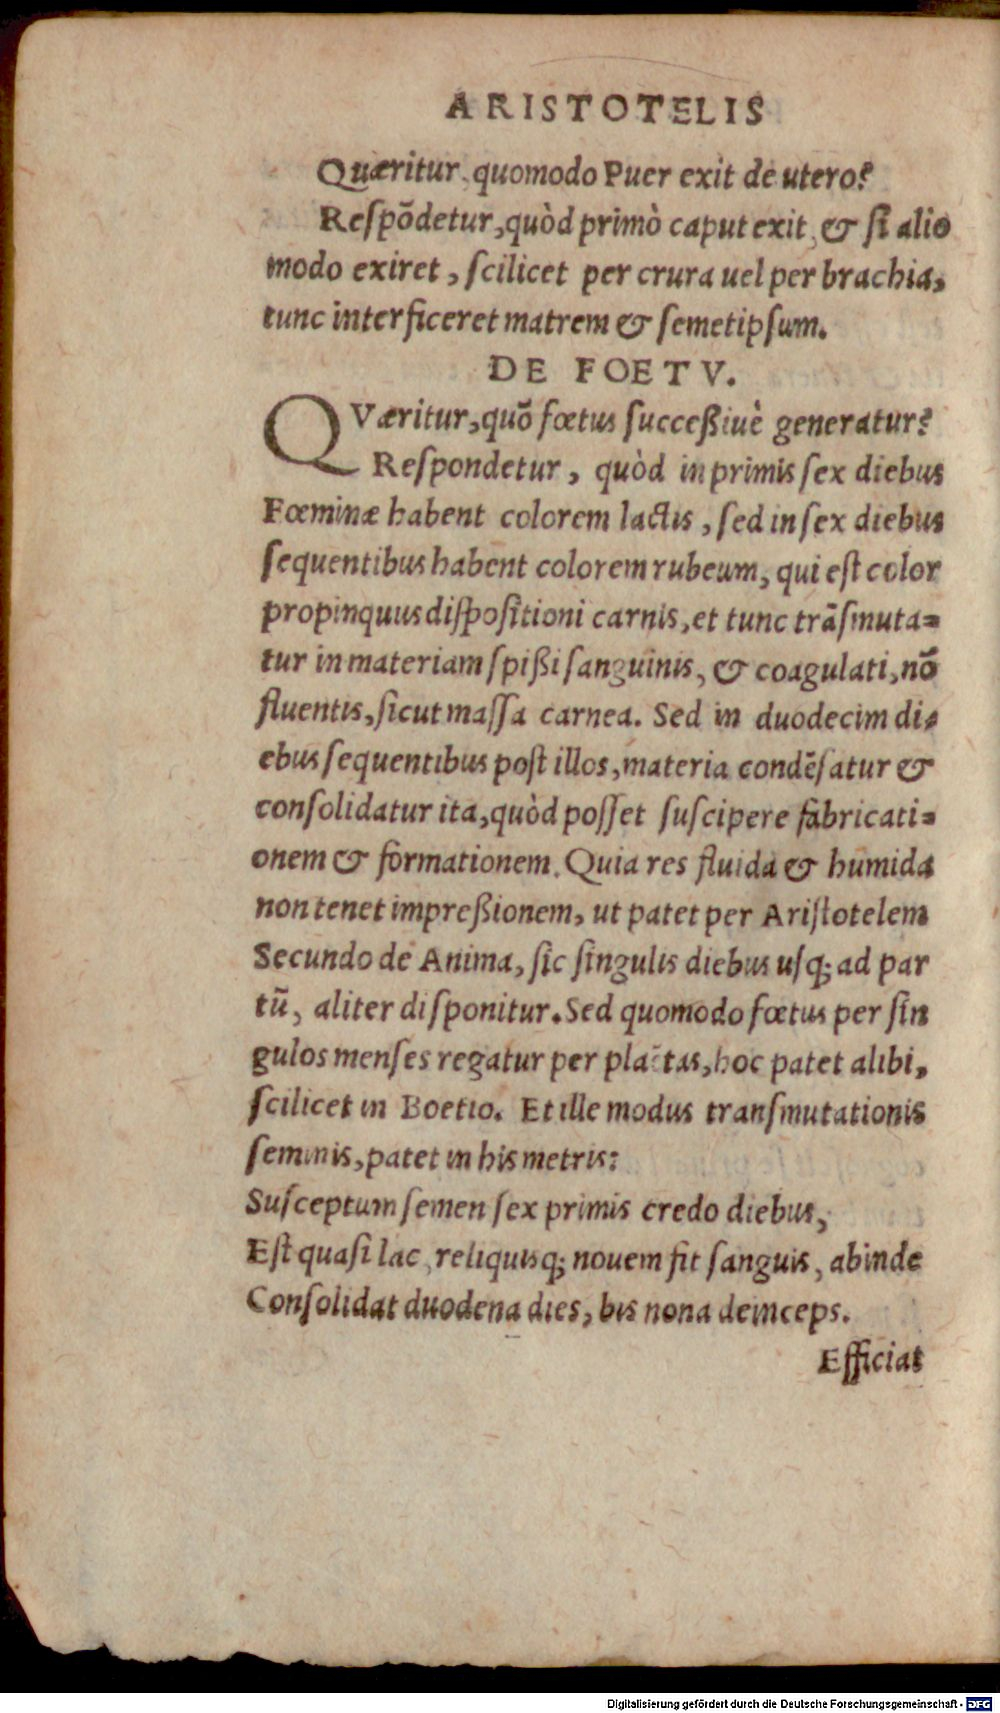 ARISTOTELIS
Quæritur, quomodo Puer exit de utero?
Respõdetur, quòd primò caput exit, & si alio
modo exiret, scilicet per crura uel per brachia,
tunc interficeret matrem & semetipsum.
DE FOETV.
QVæritur, quõ fœtus succeßiuè generatur?
Respondetur, quòd in primis sex diebus
Fœminæ habent colorem lactis, sed in sex diebus
sequentibus habent colorem rubeum, qui est color
propinquus dispositioni carnis, et tunc trãsmuta=
tur in materiam spißi sanguinis, & coagulati, nõ
fluentis, sicut massa carnea. Sed in duodecim di=
ebus sequentibus post illos, materia condẽsatur &
consolidatur ita, quòd posset suscipere fabricati=
onem & formationem. Quia res fluida & humida
non tenet impreßionem, ut patet per Aristotelem
Secundo de Anima, sic singulis diebus usq; ad par
tũ, aliter disponitur. Sed quomodo fœtus per sin
gulos menses regatur per, hoc patet alibi,
scilicet in Boetio. Et ille modus transmutationis
seminis, patet in his metris:
Susceptum semen sex primis credo diebus,
Est quasi lac, reliquisq; nouem fit sanguis, abinde
Consolidat duodena dies, bis nona deinceps.
Efficiat
Digitalisierung gefördert durch die Deutsche Forschungsgemeinschaft - DFG